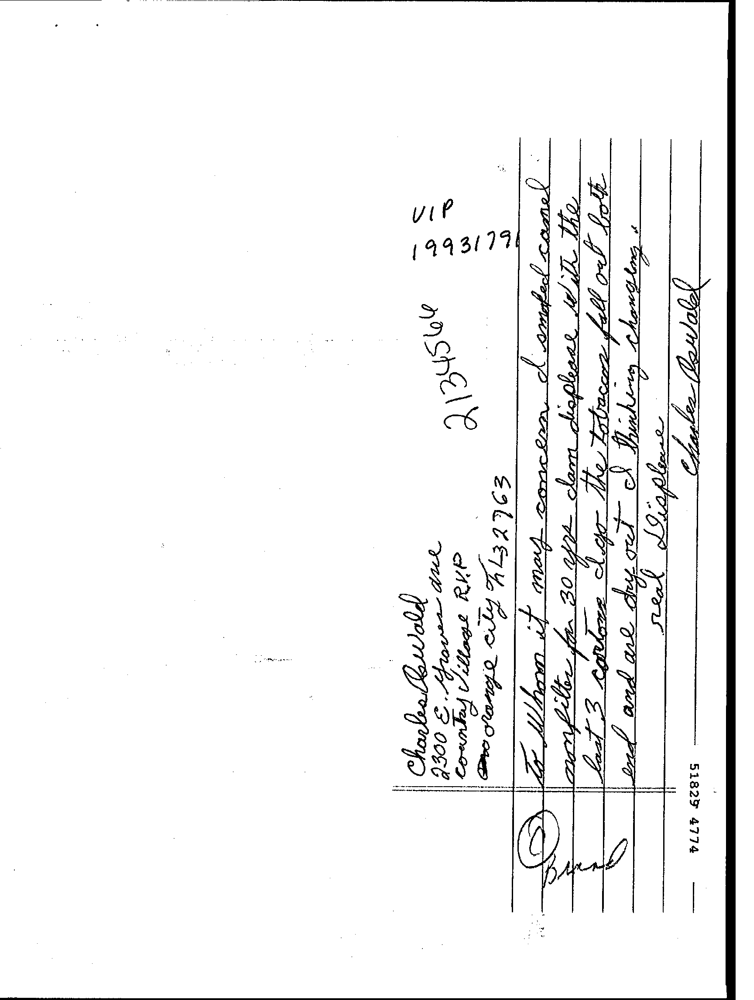 Charles Oswald
2300 E. Graves ave
country Village R.V.P
orange city FL 32763
VIP
19931791
2134566
to Whom it may concern I smoked camel
nonfilter for 30 yrs Iam displease with the
last 3 cartons I go the tobaccos fall out both
end and are dry out I thinking changing.
real Displease
Charles Oswald
Brand
51829 4774